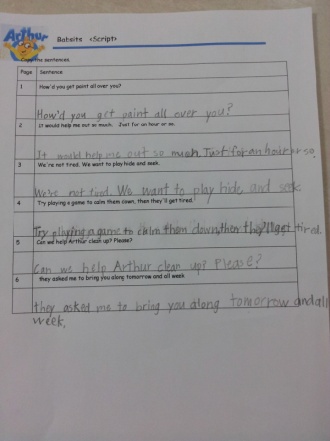 Arthur
Babsits <Script>
Copy the sentences.
Page Sentence
1 How'd you get paint all over you?
How'd you get paint all over you?
2 It would help me out so much. Just for an hour or so.
It would help me out so much. Just for an hour or so.
3 We're not tired. We want to play hide and seek.
We're not tired. We want to play hide, and seek
4 Try playing a game to calm them down, then they'll get tired.
Try playing a game to calm them down, then they'll get tired.
5 Can we help Arthur clean up? Please?
Can we help Arthur clean up? Please?
6 they asked me to bring you along tomorrow and all week.
they asked me to bring you along tomorrow and all
week.